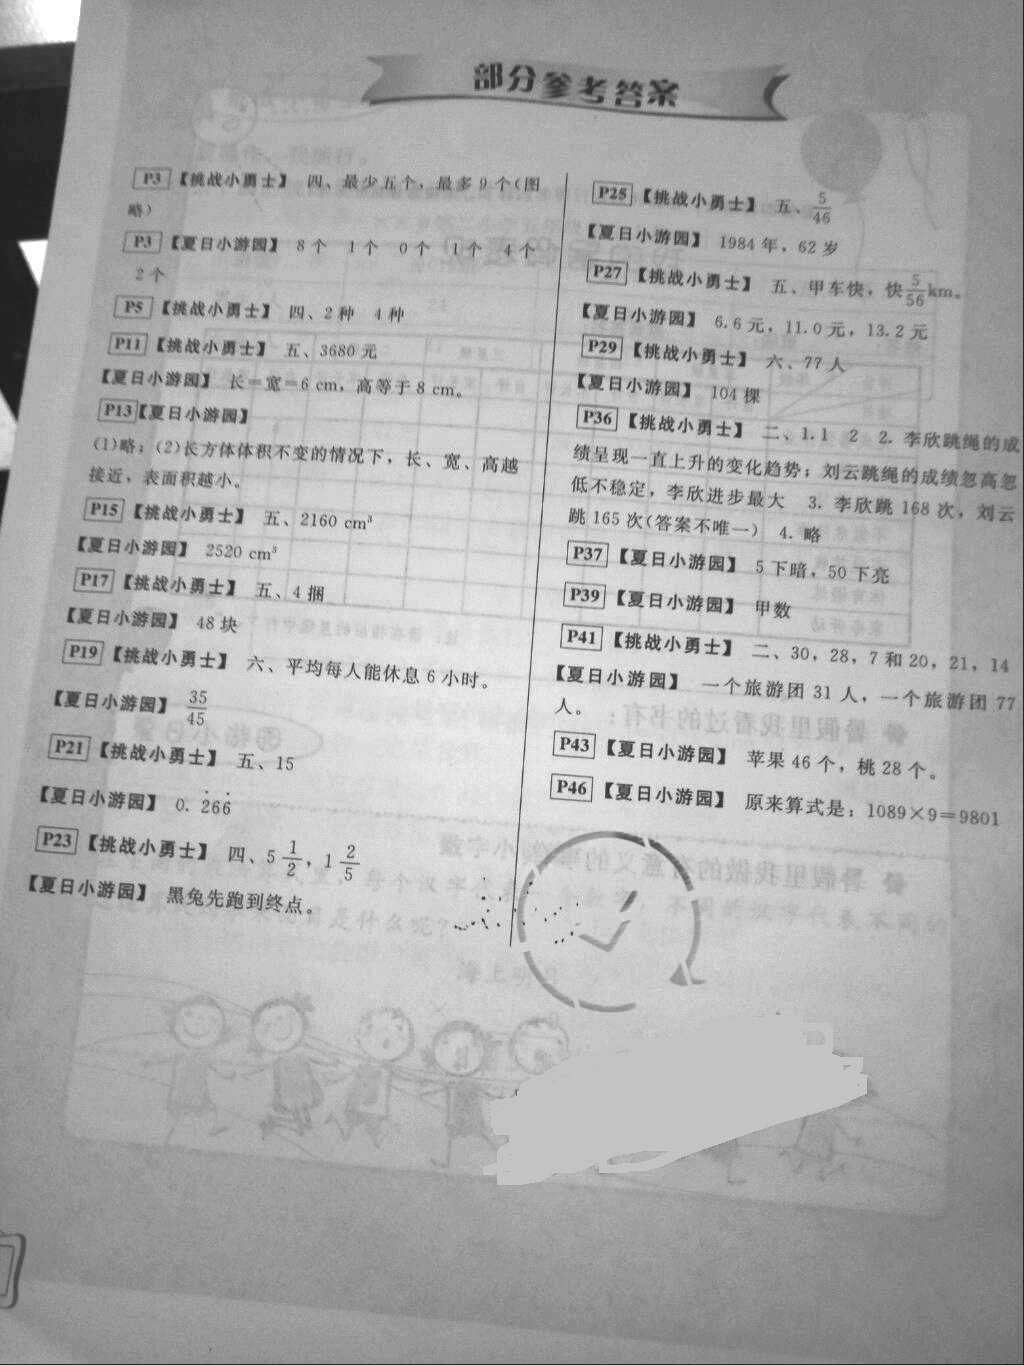 部分参考答案
P3 【挑战小勇士】 四、最少五个，最多9个（图
略）
P3 【夏日小游园】 8个 1个 0个 1个 4个
2个
P5 【挑战小勇士】 四、2种 4种
P11 【挑战小勇士】 五、3680元
【夏日小游园】 长＝宽＝6 cm，高等于8 cm。
P13 【夏日小游园】
(1)略；(2)长方体体积不变的情况下，长、宽、高越
接近，表面积越小。
P15 【挑战小勇士】 五、2160 cm³
【夏日小游园】 2520 cm³
P17 【挑战小勇士】 五、4捆
【夏日小游园】 48块
P19 【挑战小勇士】 六、平均每人能休息6小时。
【夏日小游园】 35/45
P21 【挑战小勇士】 五、15
【夏日小游园】 0.2̇66̇
P23 【挑战小勇士】 四、5 1/2，1 2/5
【夏日小游园】 黑兔先跑到终点。
P25 【挑战小勇士】 五、5/46
【夏日小游园】 1984年，62岁
P27 【挑战小勇士】 五、甲车快，快5/56 km。
【夏日小游园】 6.6元，11.0元，13.2元
P29 【挑战小勇士】 六、77人
【夏日小游园】 104棵
P36 【挑战小勇士】 二、1.1 2 2. 李欣跳绳的成
绩呈现一直上升的变化趋势；刘云跳绳的成绩忽高忽
低不稳定，李欣进步最大 3. 李欣跳168次，刘云
跳165次（答案不唯一） 4. 略
P37 【夏日小游园】 5下暗，50下亮
P39 【夏日小游园】 甲数
P41 【挑战小勇士】 二、30，28，7和20，21，14
【夏日小游园】 一个旅游团31人，一个旅游团77
人。
P43 【夏日小游园】 苹果46个，桃28个。
P46 【夏日小游园】 原来算式是：1089×9＝9801